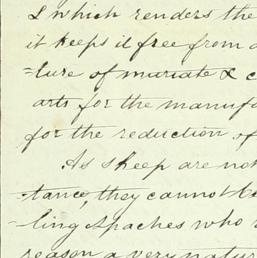 & which renders the
it keeps it free from
=ture of muriate &
arts for the manuf
for the reduction of
As sheep are not
-tance, they cannot be
-ling Apaches who
reason a very natur